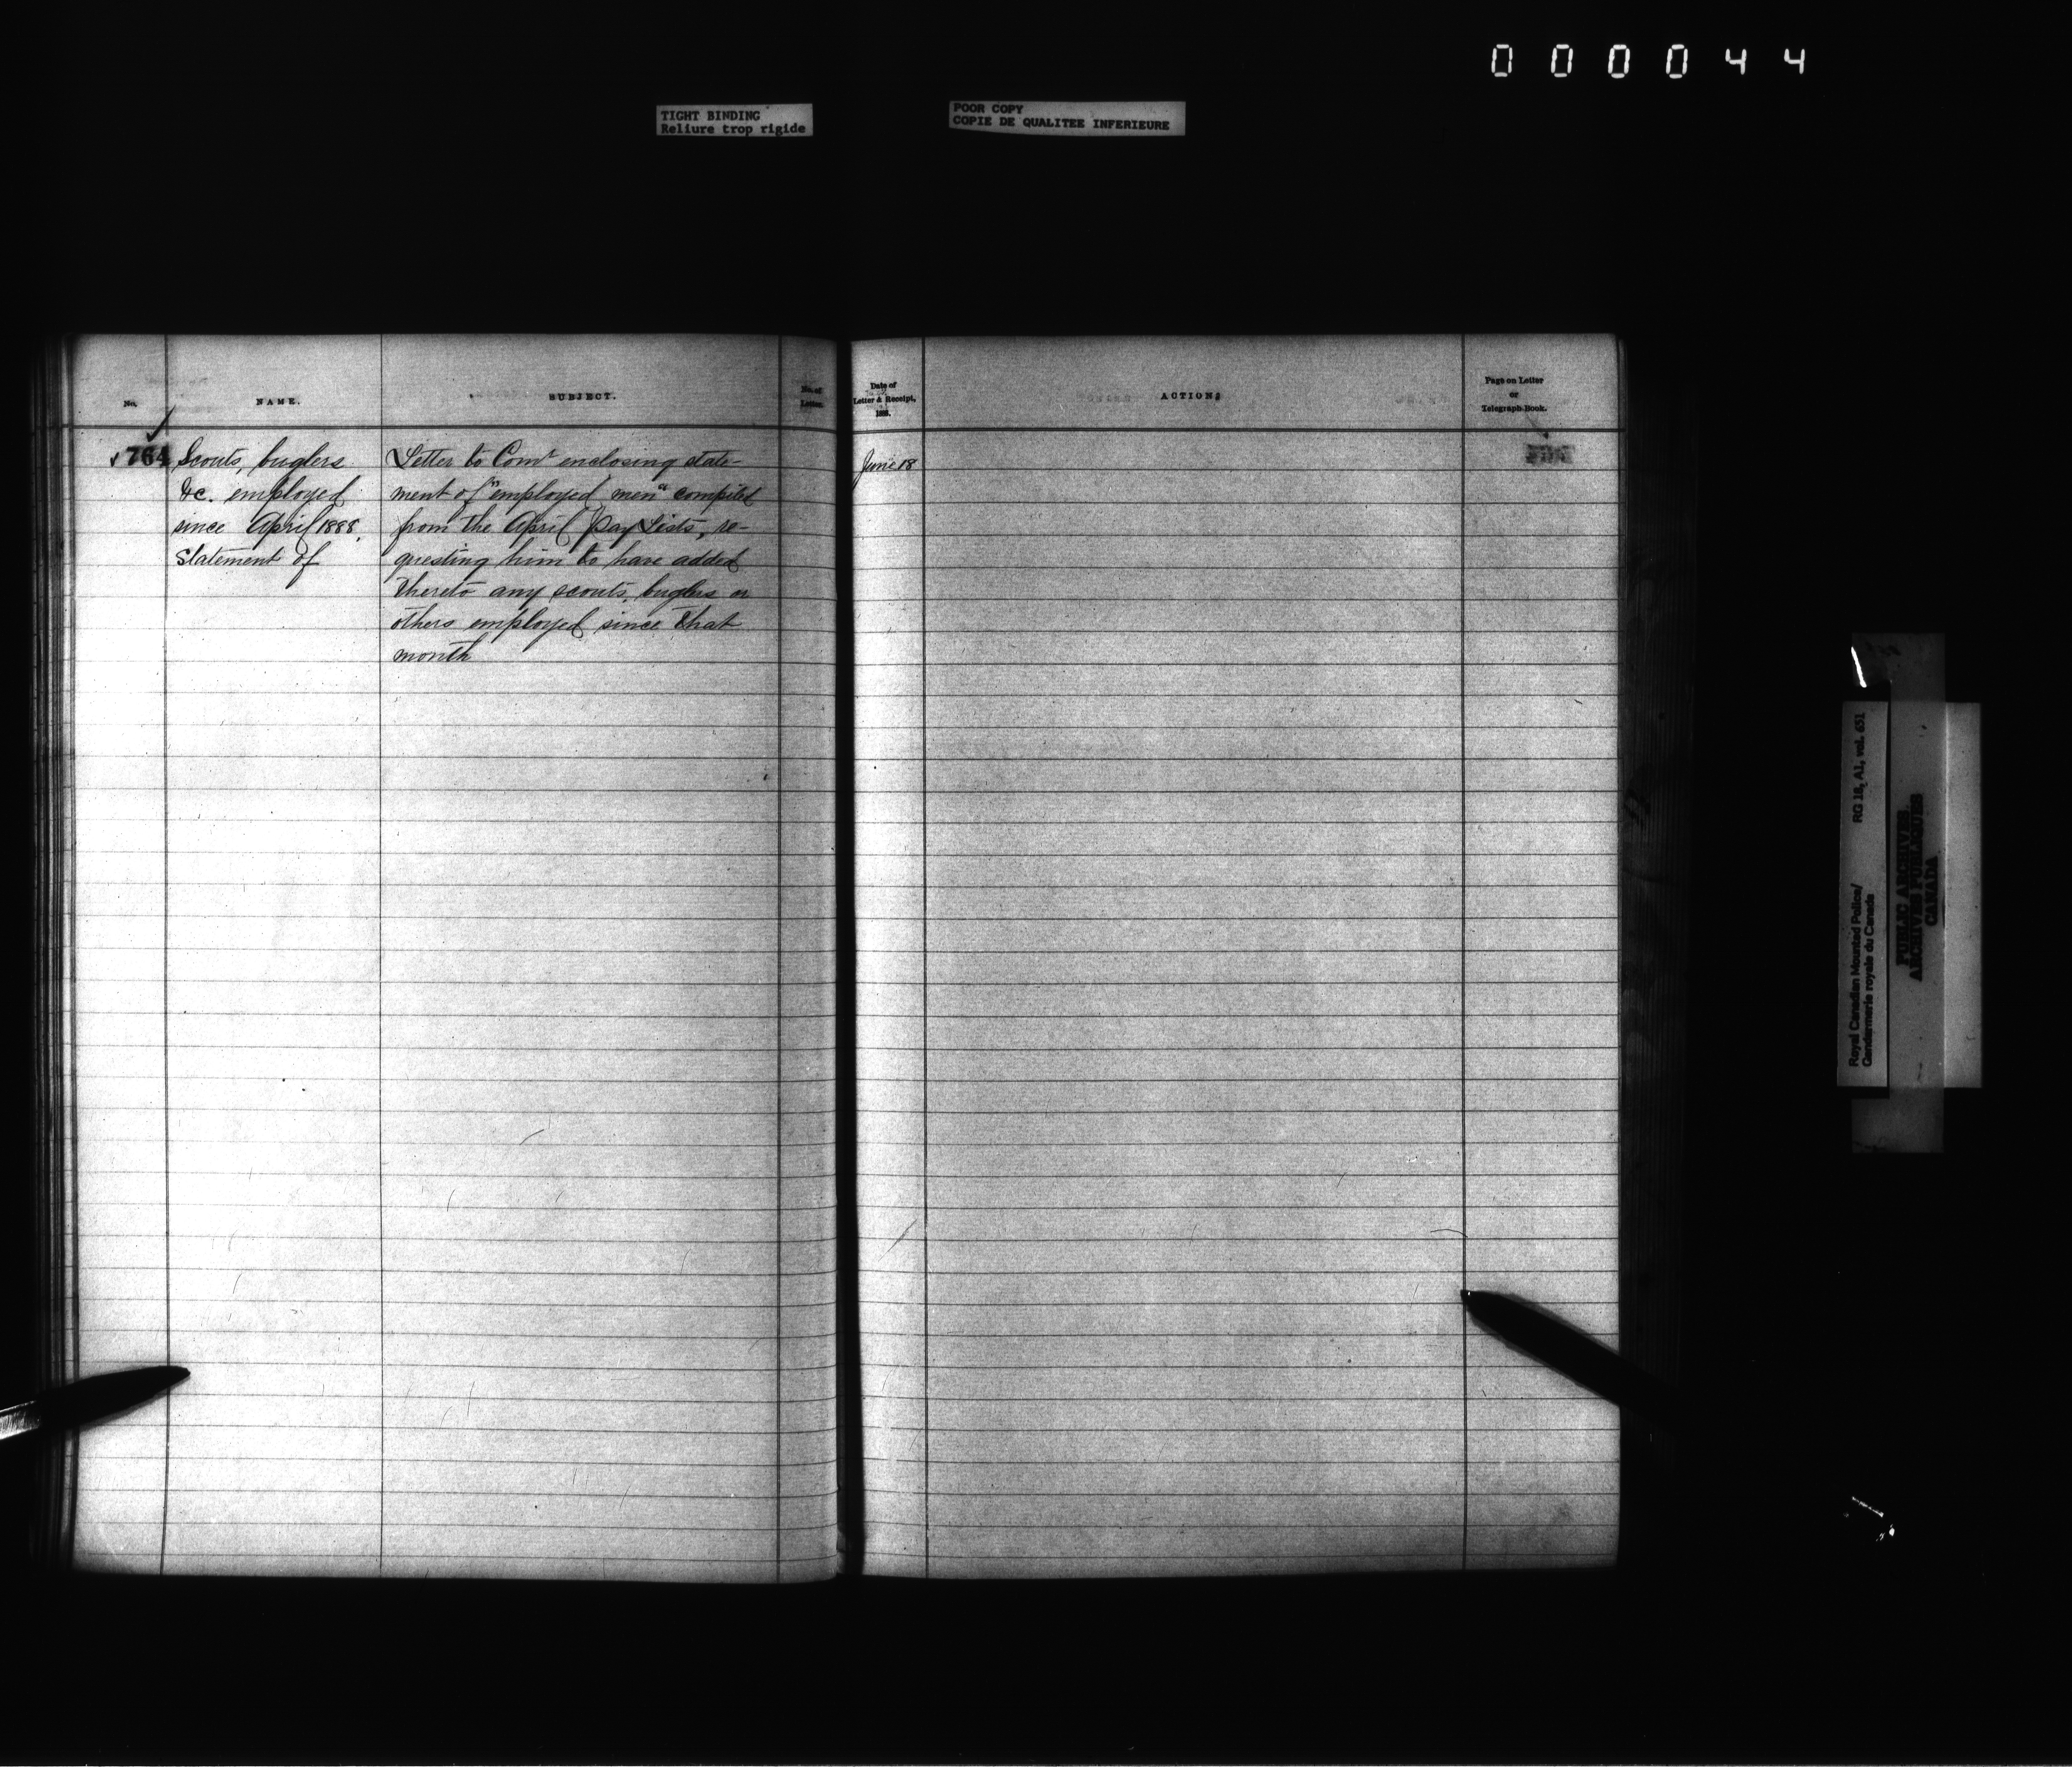 000044
TIGHT BINDING
Reliure trop rigide
POOR COPY
COPIE DE QUALITEE INFERIEURE
No.
NAME.
SUBJECT.
No. of
Letter.
764
Scouts, buglers
&c. employed
since April 1888,
Statement of
Letter to Comr enclosing state-
ment of "employed men" compiled
from the April Pay Lists, re-
questing him to have added
thereto any scouts, buglers or
others employed since that
month
Date of
Letter & Receipt,
1888.
ACTION
Page on Letter
or
Telegraph-Book.
June 18
Royal Canadian Mounted Police/
Gendarmerie royale du Canada
RG 18, A1, vol. 651
PUBLIC ARCHIVES
ARCHIVES PUBLIQUES
CANADA